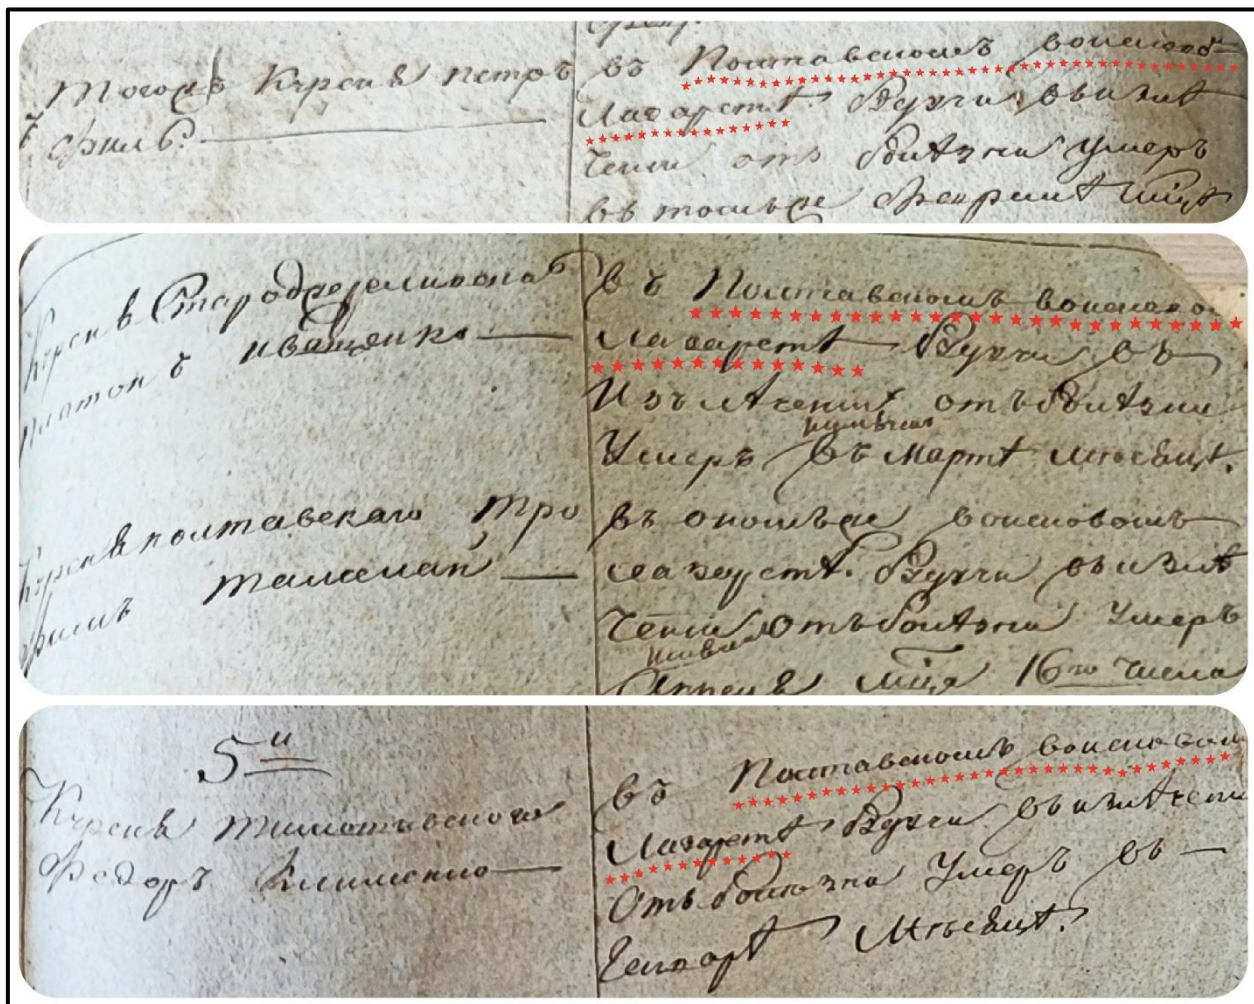 тогожъ Куреня петръ
въ Полтавскомъ войсково
Лазаретѣ Будучи въ излѣ
чении отъ болѣзни умеръ
въ томъже Феврилѣ мцѣ
Куреня Стародереливского
платонъ иващенко
въ Полтавскомъ войсково
Лазаретѣ Будучи въ
Излѣчении отъ болѣзни
Умеръ въ мартѣ месяцѣ.
Куреня полтавскаго Тро
фимъ
въ ономъже войсковомъ
лазаретѣ Будучи въ излѣ
чении отъ болѣзни Умеръ
Апреля мца 16го числа
5й
Куреня тимошовского
Федоръ Клименко
въ Полтавскомъ войсковом
Лазаретѣ Будучи въ излѣчени
Отъ болѣзни Умеръ въ
Генварѣ Месяцѣ.